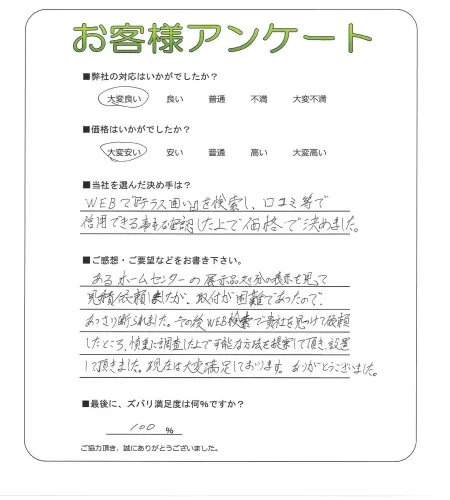 お客様アンケート
■弊社の対応はいかがでしたか？
大変良い 良い 普通 不満 大変不満
■価格はいかがでしたか？
大変安い 安い 普通 高い 大変高い
■当社を選んだ決め手は？
WEBで「テラス囲い」を検索し、口コミ等で
信用できる事を確認した上で価格で決めました。
■ご感想・ご要望などをお書き下さい。
あるホームセンターの展示品処分の表示を見って
見積依頼しましたが、取付が困難であったので、
あっさり断られました。その後WEB検索で貴社を見つけて依頼
したところ、慎重に調査した上で可能な方法を提案して頂き、設置
して頂きました。現在は大変満足しております。ありがとうございました。
■最後に、ズバリ満足度は何%ですか？
100 %
ご協力頂き、誠にありがとうございました。